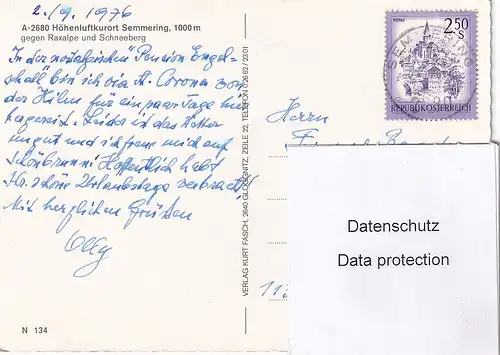 2./9. 1976
A-2680 Höhenluftkurort Semmering, 1000 m
gegen Raxalpe und Schneeberg
In der nostalgischen "Pension Engel-
schall" bin ich via St. Corona von
der Hilm für ein paar Tage hier
Leider ist das Wetter
ungut und ich freue mich auf
Schönbrunn! Hoffentlich habt
Ihr schöne Urlaubstage verbracht!
Mit herzlichen Grüßen
N 134
VERLAG KURT FASCH, 2640 GLOGGNITZ, ZEILE 22, TELEFON 0 26 62 / 23 01
Herrn
MURAU
2.50
S
SEMMERING
REPUBLIK ÖSTERREICH
Datenschutz
Data protection